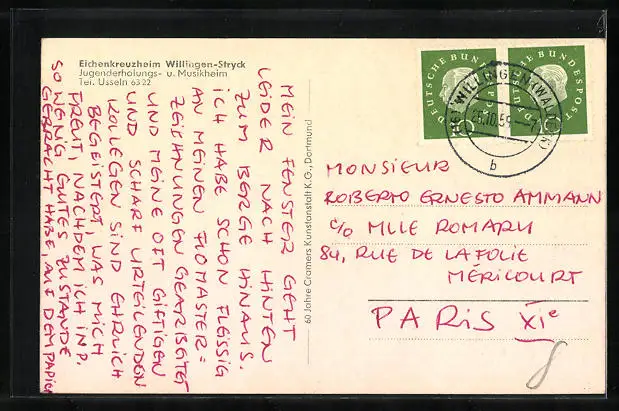 Eichenkreuzheim Willingen-Stryck
Jugenderholungs- u. Musikheim
Tel. Usseln 6322
MEIN FENSTER GEHT
LEIDER NACH HINTEN
ZUM BERGE HINAUS.
ICH HABE SCHON FLEISSIG
AN MEINEN FLOMASTER=
ZEICHNUNGEN GEARBEITET
UND MEINE OFT GIFTIGEN
UND SCHARF URTEILENDEN
KOLLEGEN SIND EHRLICH
BEGEISTERT, WAS MICH
FREUT, NACHDEM ICH IN P.
SO WENIG GUTES ZUSTANDE
GEBRACHT HABE, AUF DEM PAPIER
60 Jahre Cramers Kunstanstalt K.G., Dortmund
DEUTSCHE BUNDESPOST
DEUTSCHE BUNDESPOST
10
WILLINGEN (WALDECK)
26.10.59.-7
b
MONSIEUR
ROBERTO ERNESTO AMMANN
c/o MLLE ROMARY
84, RUE DE LA FOLIE
MÉRICOURT
PARIS XIe